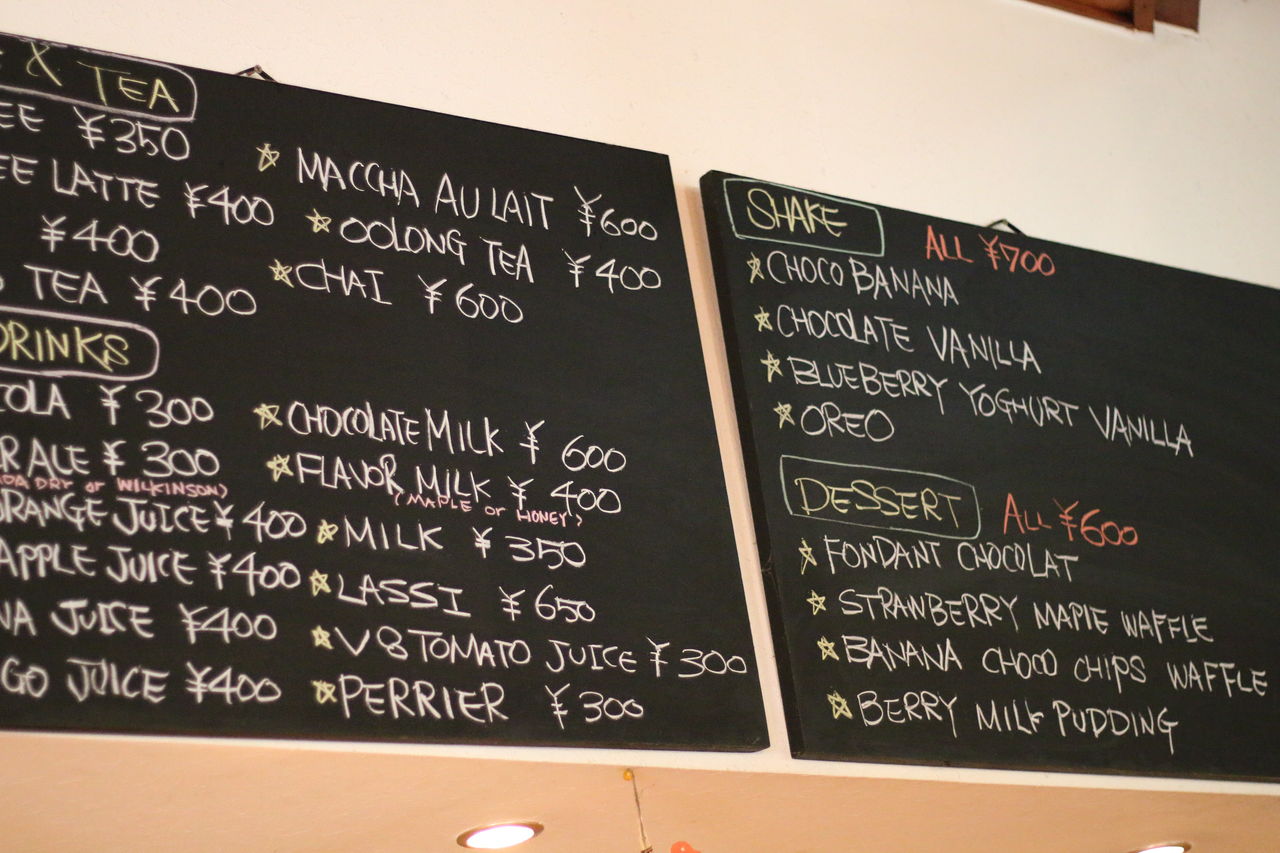 & TEA
EE ¥350
EE LATTE ¥400
¥400
TEA ¥400
☆ MACCHA AU LAIT ¥600
☆ OOLONG TEA ¥400
☆ CHAI ¥600
DRINKS
COLA ¥300
R ALE ¥300
ADA DRY or WILKINSON)
ORANGE JUICE ¥400
APPLE JUICE ¥400
VA JUICE ¥400
GO JUICE ¥400
☆ CHOCOLATE MILK ¥600
☆ FLAVOR MILK ¥400
(MAPLE or HONEY)
☆ MILK ¥350
☆ LASSI ¥650
☆ V8 TOMATO JUICE ¥300
☆ PERRIER ¥300
SHAKE ALL ¥700
☆ CHOCO BANANA
☆ CHOCOLATE VANILLA
☆ BLUEBERRY YOGHURT VANILLA
☆ OREO
DESSERT ALL ¥600
☆ FONDANT CHOCOLAT
☆ STRAWBERRY MAPLE WAFFLE
☆ BANANA CHOCO CHIPS WAFFLE
☆ BERRY MILK PUDDING